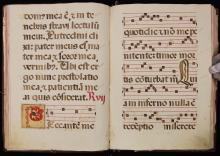 domus mea ẽ: & in te
nebris stravi lectulũ
meum. Putredini
dixi: pater meus es: mater
mea & soror mea
vermibus. Ubi est ergo
nunc prestolatio
mea & patientiã me
am quis cõsiderat. Rv̄
Peccantẽ me
quotidie & non pe
nitentem timor mor
tis cõturbat m
in inferno nulla ẽ
redẽptio miserere